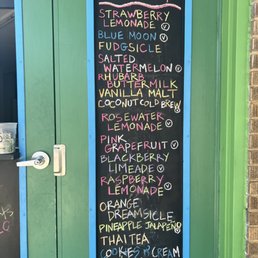 STRAWBERRY
LEMONADE Ⓥ
BLUE MOON Ⓥ
FUDGSICLE
SALTED
WATERMELON Ⓥ
RHUBARB
BUTTERMILK
VANILLA MALT
COCONUT COLD BREW Ⓥ
ROSEWATER
LEMONADE Ⓥ
PINK
GRAPEFRUIT Ⓥ
BLACKBERRY
LIMEADE Ⓥ
RASPBERRY
LEMONADE Ⓥ
ORANGE
DREAMSICLE
PINEAPPLE JALAPEÑO Ⓥ
THAI TEA
COOKIES N' CREAM